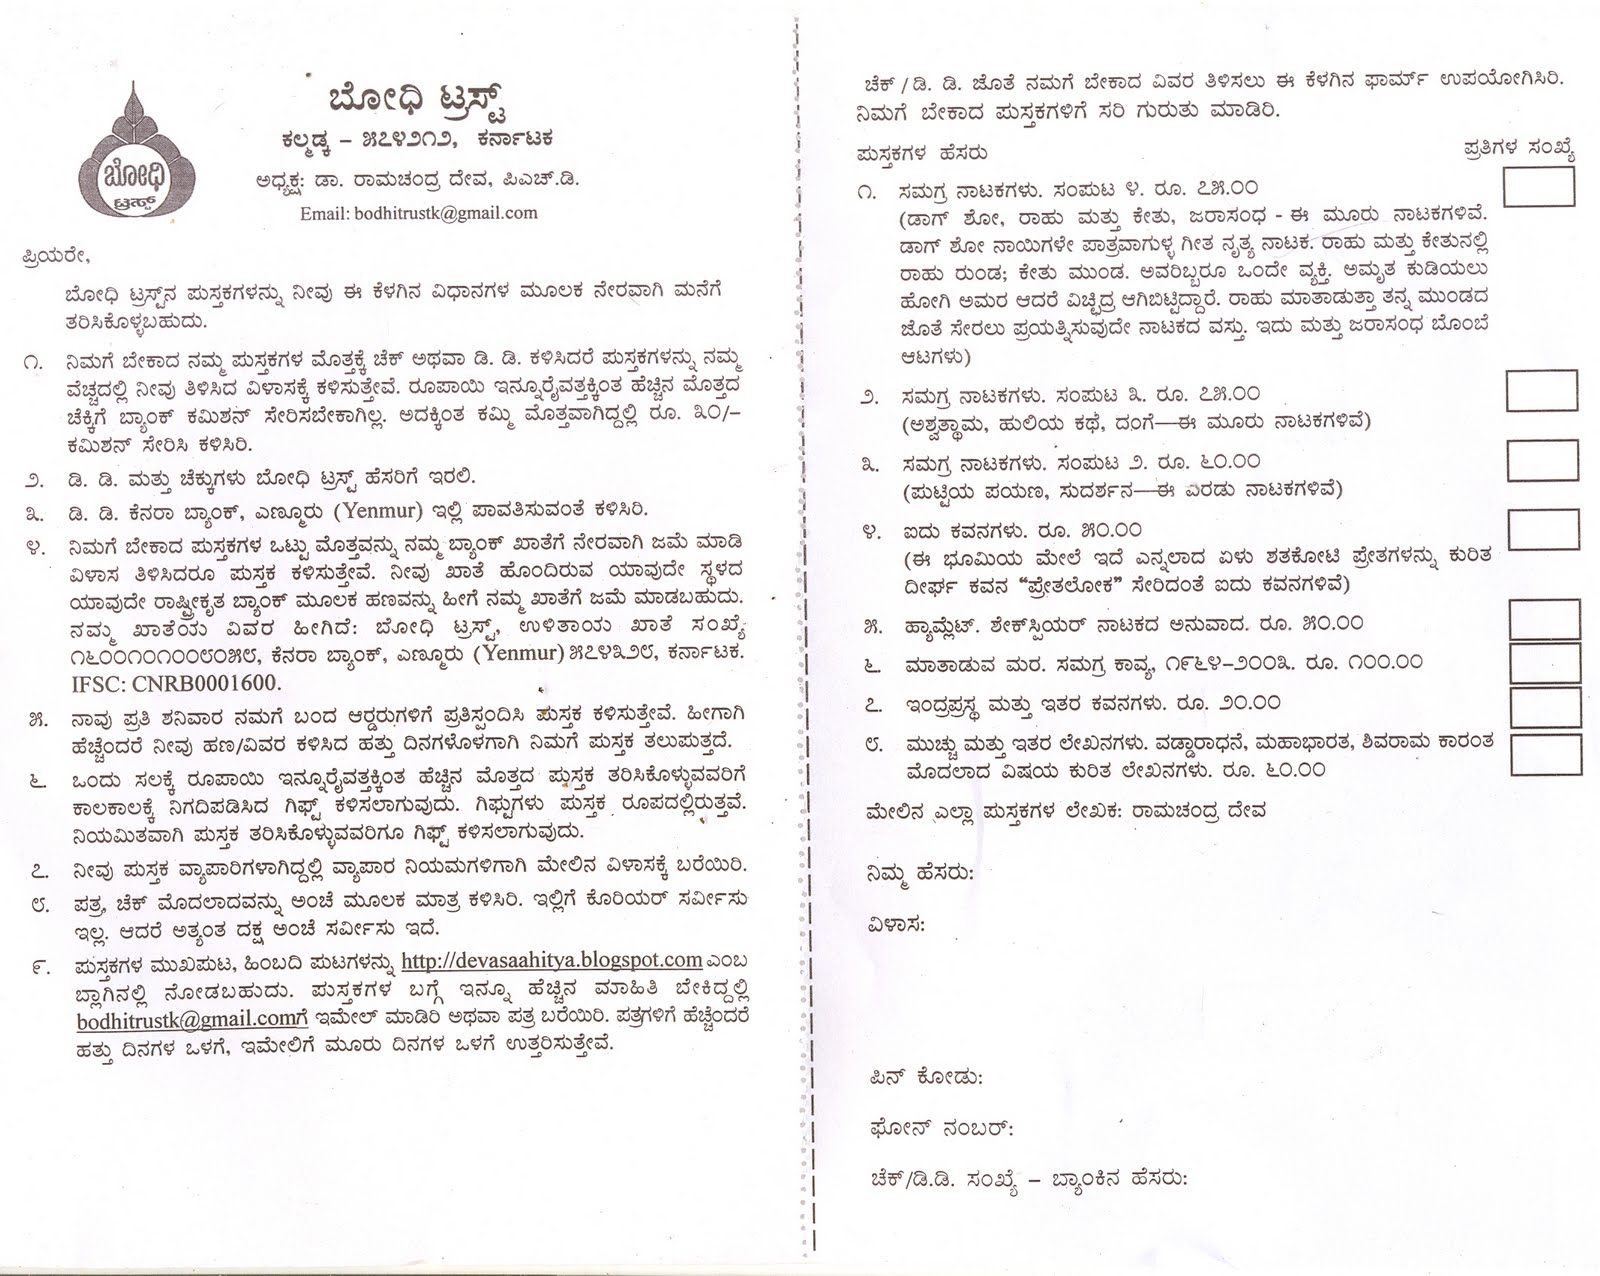 ಬೋಧಿ ಟ್ರಸ್ಟ್
ಕಲ್ಮಡ್ಕ – ೫೭೪೨೧೨, ಕರ್ನಾಟಕ
ಬೋಧಿ
ಟ್ರಸ್ಟ್
ಅಧ್ಯಕ್ಷ: ಡಾ. ರಾಮಚಂದ್ರ ದೇವ, ಪಿಎಚ್.ಡಿ.
Email: bodhitrustk@gmail.com
ಪ್ರಿಯರೇ,
ಬೋಧಿ ಟ್ರಸ್ಟ್‌ನ ಪುಸ್ತಕಗಳನ್ನು ನೀವು ಈ ಕೆಳಗಿನ ವಿಧಾನಗಳ ಮೂಲಕ ನೇರವಾಗಿ ಮನೆಗೆ
ತರಿಸಿಕೊಳ್ಳಬಹುದು.
೧. ನಿಮಗೆ ಬೇಕಾದ ನಮ್ಮ ಪುಸ್ತಕಗಳ ಮೊತ್ತಕ್ಕೆ ಚೆಕ್ ಅಥವಾ ಡಿ. ಡಿ. ಕಳಿಸಿದರೆ ಪುಸ್ತಕಗಳನ್ನು ನಮ್ಮ
ವೆಚ್ಚದಲ್ಲಿ ನೀವು ತಿಳಿಸಿದ ವಿಳಾಸಕ್ಕೆ ಕಳಿಸುತ್ತೇವೆ. ರೂಪಾಯಿ ಇನ್ನೂರೈವತ್ತಕ್ಕಿಂತ ಹೆಚ್ಚಿನ ಮೊತ್ತದ
ಚೆಕ್ಕಿಗೆ ಬ್ಯಾಂಕ್ ಕಮಿಶನ್ ಸೇರಿಸಬೇಕಾಗಿಲ್ಲ. ಅದಕ್ಕಿಂತ ಕಮ್ಮಿ ಮೊತ್ತವಾಗಿದ್ದಲ್ಲಿ ರೂ. ೩೦/–
ಕಮಿಶನ್ ಸೇರಿಸಿ ಕಳಿಸಿರಿ.
೨. ಡಿ. ಡಿ. ಮತ್ತು ಚೆಕ್ಕುಗಳು ಬೋಧಿ ಟ್ರಸ್ಟ್ ಹೆಸರಿಗೆ ಇರಲಿ.
೩. ಡಿ. ಡಿ. ಕೆನರಾ ಬ್ಯಾಂಕ್, ಎಣ್ಮೂರು (Yenmur) ಇಲ್ಲಿ ಪಾವತಿಸುವಂತೆ ಕಳಿಸಿರಿ.
೪. ನಿಮಗೆ ಬೇಕಾದ ಪುಸ್ತಕಗಳ ಒಟ್ಟು ಮೊತ್ತವನ್ನು ನಮ್ಮ ಬ್ಯಾಂಕ್ ಖಾತೆಗೆ ನೇರವಾಗಿ ಜಮೆ ಮಾಡಿ
ವಿಳಾಸ ತಿಳಿಸಿದರೂ ಪುಸ್ತಕ ಕಳಿಸುತ್ತೇವೆ. ನೀವು ಖಾತೆ ಹೊಂದಿರುವ ಯಾವುದೇ ಸ್ಥಳದ
ಯಾವುದೇ ರಾಷ್ಟ್ರೀಕೃತ ಬ್ಯಾಂಕ್ ಮೂಲಕ ಹಣವನ್ನು ಹೀಗೆ ನಮ್ಮ ಖಾತೆಗೆ ಜಮೆ ಮಾಡಬಹುದು.
ನಮ್ಮ ಖಾತೆಯ ವಿವರ ಹೀಗಿದೆ: ಬೋಧಿ ಟ್ರಸ್ಟ್, ಉಳಿತಾಯ ಖಾತೆ ಸಂಖ್ಯೆ
೧೬೦೦೧೦೧೦೦೮೦೫೮, ಕೆನರಾ ಬ್ಯಾಂಕ್, ಎಣ್ಮೂರು (Yenmur) ೫೭೪೩೨೮, ಕರ್ನಾಟಕ.
IFSC: CNRB0001600.
೫. ನಾವು ಪ್ರತಿ ಶನಿವಾರ ನಮಗೆ ಬಂದ ಆರ್‍ಡರುಗಳಿಗೆ ಪ್ರತಿಸ್ಪಂದಿಸಿ ಪುಸ್ತಕ ಕಳಿಸುತ್ತೇವೆ. ಹೀಗಾಗಿ
ಹೆಚ್ಚೆಂದರೆ ನೀವು ಹಣ/ವಿವರ ಕಳಿಸಿದ ಹತ್ತು ದಿನಗಳೊಳಗಾಗಿ ನಿಮಗೆ ಪುಸ್ತಕ ತಲುಪುತ್ತದೆ.
೬. ಒಂದು ಸಲಕ್ಕೆ ರೂಪಾಯಿ ಇನ್ನೂರೈವತ್ತಕ್ಕಿಂತ ಹೆಚ್ಚಿನ ಮೊತ್ತದ ಪುಸ್ತಕ ತರಿಸಿಕೊಳ್ಳುವವರಿಗೆ
ಕಾಲಕಾಲಕ್ಕೆ ನಿಗದಿಪಡಿಸಿದ ಗಿಫ್ಟ್ ಕಳಿಸಲಾಗುವುದು. ಗಿಫ್ಟುಗಳು ಪುಸ್ತಕ ರೂಪದಲ್ಲಿರುತ್ತವೆ.
ನಿಯಮಿತವಾಗಿ ಪುಸ್ತಕ ತರಿಸಿಕೊಳ್ಳುವವರಿಗೂ ಗಿಫ್ಟ್ ಕಳಿಸಲಾಗುವುದು.
೭. ನೀವು ಪುಸ್ತಕ ವ್ಯಾಪಾರಿಗಳಾಗಿದ್ದಲ್ಲಿ ವ್ಯಾಪಾರ ನಿಯಮಗಳಿಗಾಗಿ ಮೇಲಿನ ವಿಳಾಸಕ್ಕೆ ಬರೆಯಿರಿ.
೮. ಪತ್ರ, ಚೆಕ್ ಮೊದಲಾದವನ್ನು ಅಂಚೆ ಮೂಲಕ ಮಾತ್ರ ಕಳಿಸಿರಿ. ಇಲ್ಲಿಗೆ ಕೊರಿಯರ್ ಸರ್ವೀಸು
ಇಲ್ಲ. ಆದರೆ ಅತ್ಯಂತ ದಕ್ಷ ಅಂಚೆ ಸರ್ವೀಸು ಇದೆ.
೯. ಪುಸ್ತಕಗಳ ಮುಖಪುಟ, ಹಿಂಬದಿ ಪುಟಗಳನ್ನು http://devasaahitya.blogspot.com ಎಂಬ
ಬ್ಲಾಗಿನಲ್ಲಿ ನೋಡಬಹುದು. ಪುಸ್ತಕಗಳ ಬಗ್ಗೆ ಇನ್ನೂ ಹೆಚ್ಚಿನ ಮಾಹಿತಿ ಬೇಕಿದ್ದಲ್ಲಿ
bodhitrustk@gmail.comಗೆ ಇಮೇಲ್ ಮಾಡಿರಿ ಅಥವಾ ಪತ್ರ ಬರೆಯಿರಿ. ಪತ್ರಗಳಿಗೆ ಹೆಚ್ಚೆಂದರೆ
ಹತ್ತು ದಿನಗಳ ಒಳಗೆ, ಇಮೇಲಿಗೆ ಮೂರು ದಿನಗಳ ಒಳಗೆ ಉತ್ತರಿಸುತ್ತೇವೆ.
ಚೆಕ್ / ಡಿ. ಡಿ. ಜೊತೆ ನಮಗೆ ಬೇಕಾದ ವಿವರ ತಿಳಿಸಲು ಈ ಕೆಳಗಿನ ಫಾರ್ಮ್ ಉಪಯೋಗಿಸಿರಿ.
ನಿಮಗೆ ಬೇಕಾದ ಪುಸ್ತಕಗಳಿಗೆ ಸರಿ ಗುರುತು ಮಾಡಿರಿ.
ಪುಸ್ತಕಗಳ ಹೆಸರು ಪ್ರತಿಗಳ ಸಂಖ್ಯೆ
೧. ಸಮಗ್ರ ನಾಟಕಗಳು. ಸಂಪುಟ ೪. ರೂ. ೭೫.೦೦
(ಡಾಗ್ ಶೋ, ರಾಹು ಮತ್ತು ಕೇತು, ಜರಾಸಂಧ - ಈ ಮೂರು ನಾಟಕಗಳಿವೆ.
ಡಾಗ್ ಶೋ ನಾಯಿಗಳೇ ಪಾತ್ರವಾಗುಳ್ಳ ಗೀತ ನೃತ್ಯ ನಾಟಕ. ರಾಹು ಮತ್ತು ಕೇತುನಲ್ಲಿ
ರಾಹು ರುಂಡ; ಕೇತು ಮುಂಡ. ಅವರಿಬ್ಬರೂ ಒಂದೇ ವ್ಯಕ್ತಿ. ಅಮೃತ ಕುಡಿಯಲು
ಹೋಗಿ ಅಮರ ಆದರೆ ವಿಚ್ಛಿದ್ರ ಆಗಿಬಿಟ್ಟಿದ್ದಾರೆ. ರಾಹು ಮಾತಾಡುತ್ತಾ ತನ್ನ ಮುಂಡದ
ಜೊತೆ ಸೇರಲು ಪ್ರಯತ್ನಿಸುವುದೇ ನಾಟಕದ ವಸ್ತು. ಇದು ಮತ್ತು ಜರಾಸಂಧ ಬೊಂಬೆ
ಆಟಗಳು)
೨. ಸಮಗ್ರ ನಾಟಕಗಳು. ಸಂಪುಟ ೩. ರೂ. ೭೫.೦೦
(ಅಶ್ವತ್ಥಾಮ, ಹುಲಿಯ ಕಥೆ, ದಂಗೆ—ಈ ಮೂರು ನಾಟಕಗಳಿವೆ)
೩. ಸಮಗ್ರ ನಾಟಕಗಳು. ಸಂಪುಟ ೨. ರೂ. ೬೦.೦೦
(ಪುಟ್ಟಿಯ ಪಯಣ, ಸುದರ್ಶನ—ಈ ಎರಡು ನಾಟಕಗಳಿವೆ)
೪. ಐದು ಕವನಗಳು. ರೂ. ೫೦.೦೦
(ಈ ಭೂಮಿಯ ಮೇಲೆ ಇದೆ ಎನ್ನಲಾದ ಏಳು ಶತಕೋಟಿ ಪ್ರೇತಗಳನ್ನು ಕುರಿತ
ದೀರ್ಘ ಕವನ “ಪ್ರೇತಲೋಕ” ಸೇರಿದಂತೆ ಐದು ಕವನಗಳಿವೆ)
೫. ಹ್ಯಾಮ್ಲೆಟ್. ಶೇಕ್‌ಸ್ಪಿಯರ್ ನಾಟಕದ ಅನುವಾದ. ರೂ. ೫೦.೦೦
೬. ಮಾತಾಡುವ ಮರ. ಸಮಗ್ರ ಕಾವ್ಯ, ೧೯೬೪–೨೦೦೩. ರೂ. ೧೦೦.೦೦
೭. ಇಂದ್ರಪ್ರಸ್ಥ ಮತ್ತು ಇತರ ಕವನಗಳು. ರೂ. ೨೦.೦೦
೮. ಮುಚ್ಚು ಮತ್ತು ಇತರ ಲೇಖನಗಳು. ವಡ್ಡಾರಾಧನೆ, ಮಹಾಭಾರತ, ಶಿವರಾಮ ಕಾರಂತ
ಮೊದಲಾದ ವಿಷಯ ಕುರಿತ ಲೇಖನಗಳು. ರೂ. ೬೦.೦೦
ಮೇಲಿನ ಎಲ್ಲಾ ಪುಸ್ತಕಗಳ ಲೇಖಕ: ರಾಮಚಂದ್ರ ದೇವ
ನಿಮ್ಮ ಹೆಸರು:
ವಿಳಾಸ:
ಪಿನ್ ಕೋಡು:
ಫೋನ್ ನಂಬರ್:
ಚೆಕ್/ಡಿ.ಡಿ. ಸಂಖ್ಯೆ – ಬ್ಯಾಂಕಿನ ಹೆಸರು: